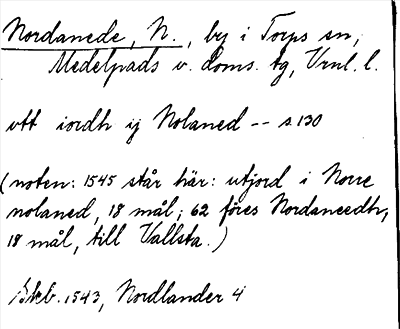 Nordanede, N., by i Torps sn,
Medelpads v. doms. tg, Vrnl. l.
vtt iordh ij Nolaned -- s. 130
(noten: 1545 står här: utjord i Norre
nolaned, 18 mål; 62 föres Nordaneedh,
18 mål, till Vallsta.)
Skb. 1543, Nordlander 4